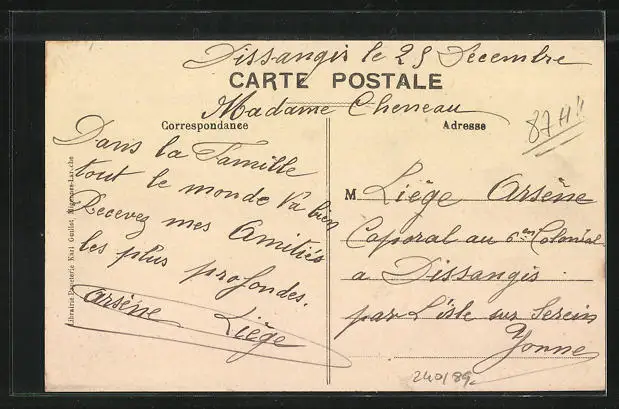 Dissangis le 25 Décembre
CARTE POSTALE
Madame Cheneau
Correspondance
Adresse
87 H"
Dans la Famille
tout le monde va bien
Recevez mes Amitiés
les plus profondes.
Arsène Liège
M Liège Arsène
Caporal au 6em Colonial
a Dissangis
par L'isle sur Serein
Yonne
Librairie-Papeterie Karl Guillot, Migennes-Laroche
240/89